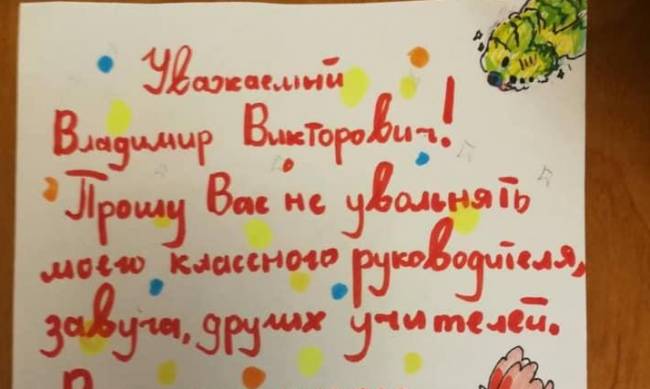 Уважаемый
Владимир Викторович!
Прошу Вас не увольнять
моего классного руководителя,
завуча, других учителей.